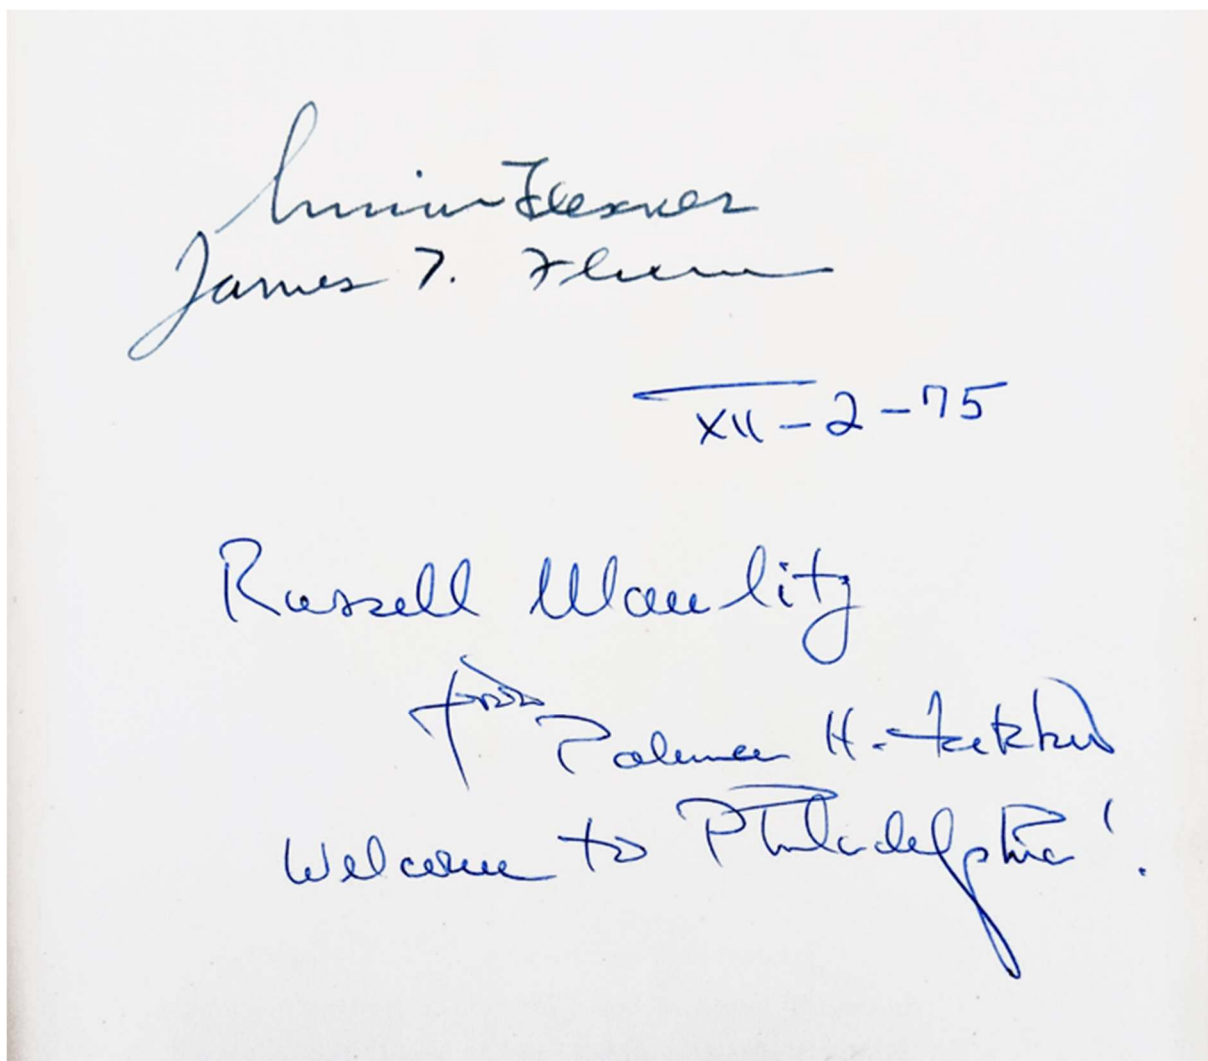 Simon Flexner
James T. Flexner
XII-2-75
Russell Maulitz
from
Palmer H. Futcher
Welcome to Philadelphia!